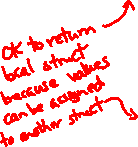 OK to return
local struct
because values
can be assigned
to another struct